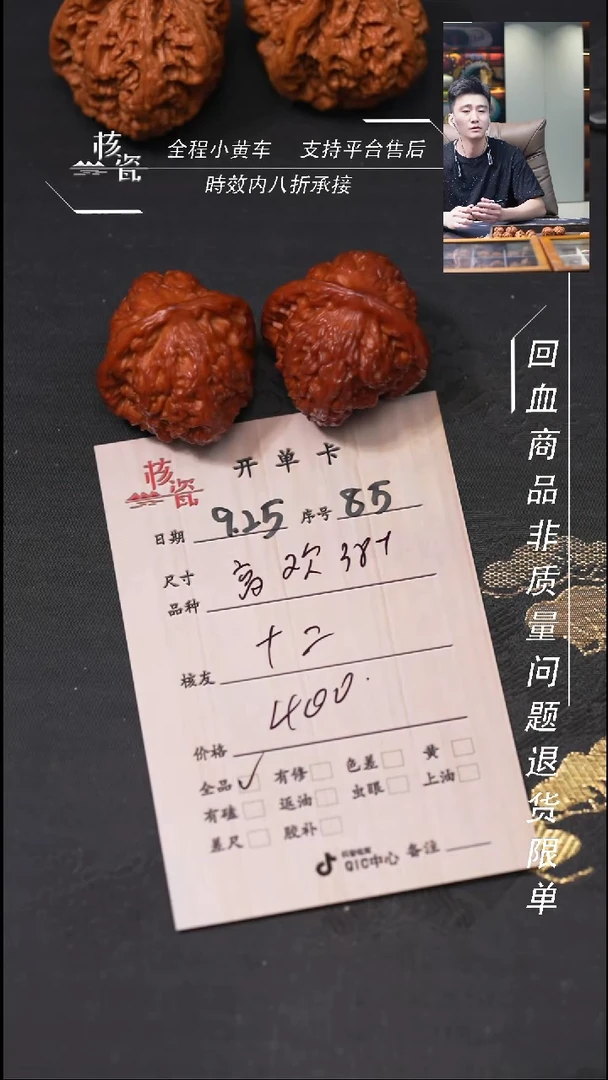 核瓷
全程小黄车 支持平台售后
時效内八折承接
回血商品非质量问题退货限单
核瓷
开单卡
日期 9.25 序号 85
尺寸
品种
核友 十二
价格 400.
全品 ✓ 有修 色差 黄
有磕 返油 虫眼 上油
差尺 胶补
QIC中心 备注